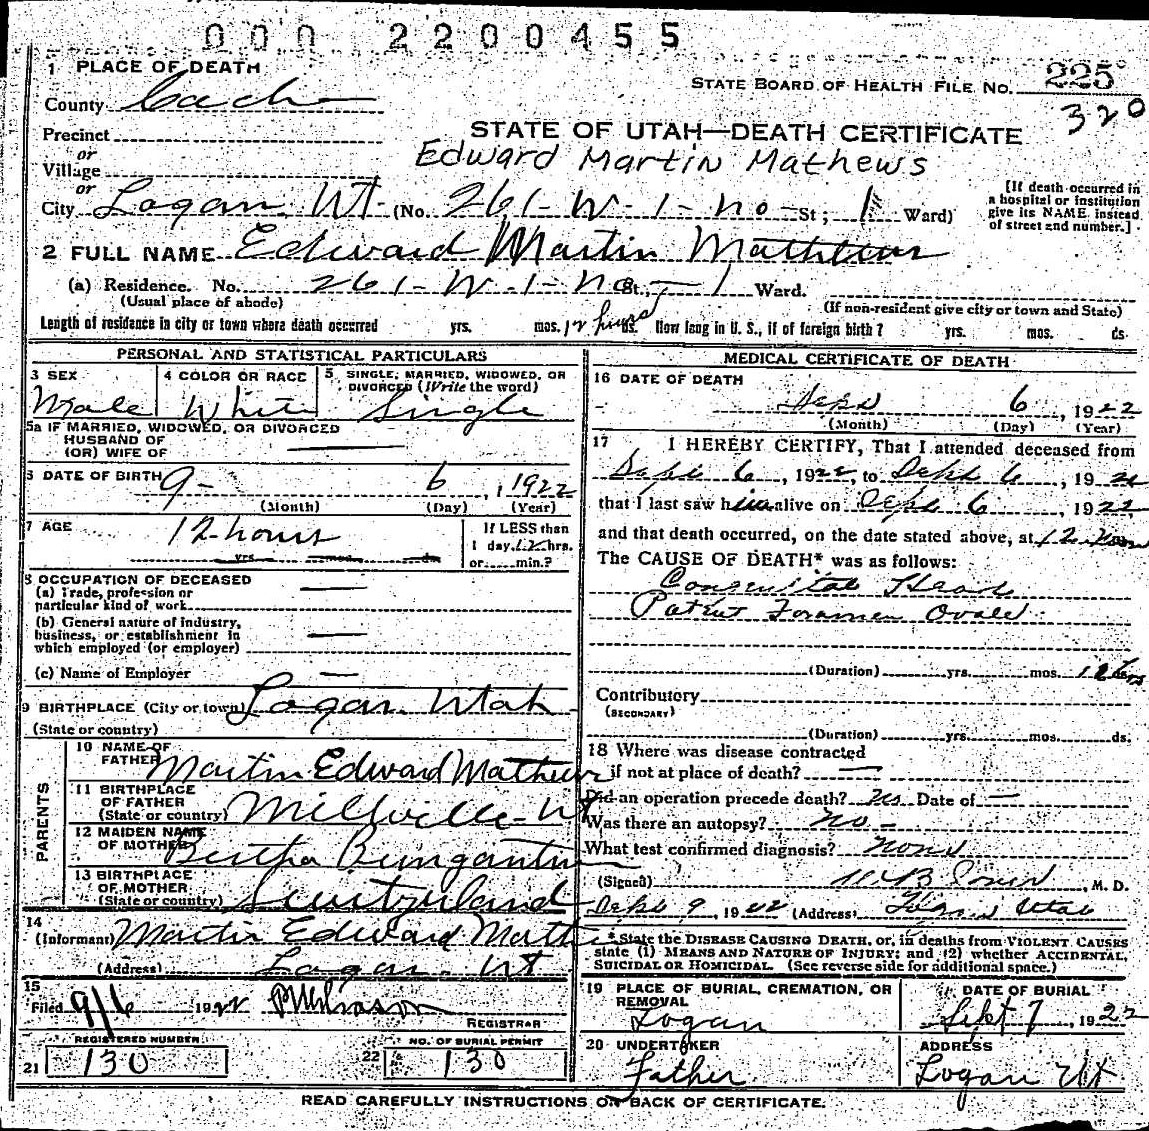 000 2200455
1 PLACE OF DEATH
STATE BOARD OF HEALTH FILE NO. 225
320
County Cache
Precinct
STATE OF UTAH—DEATH CERTIFICATE
or
Edward Martin Mathews
Village
or
City Logan Ut. (No. 261-W-1-No- St; 1 Ward)
[If death occurred in
a hospital or institution
give its NAME instead
of street and number.]
2 FULL NAME Edward Martin Mathews
(a) Residence. No. 261-W-1-No St., 1 Ward.
(Usual place of abode)
(If non-resident give city or town and State)
Length of residence in city or town where death occurred yrs. mos. 12 hours ds. How long in U. S., if of foreign birth? yrs. mos. ds.
PERSONAL AND STATISTICAL PARTICULARS
3 SEX
Male
4 COLOR OR RACE
White
5 SINGLE, MARRIED, WIDOWED, OR
DIVORCED (Write the word)
Single
5a IF MARRIED, WIDOWED, OR DIVORCED
HUSBAND OF
(OR) WIFE OF
6 DATE OF BIRTH 9- 6, 1922
(Month) (Day) (Year)
7 AGE 12-hours
yrs. mos. ds.
If LESS than
1 day, 12 hrs.
or min.?
8 OCCUPATION OF DECEASED
(a) Trade, profession or
particular kind of work
(b) General nature of industry,
business, or establishment in
which employed (or employer)
(c) Name of Employer
9 BIRTHPLACE (City or town) Logan Utah
(State or country)
PARENTS
10 NAME OF
FATHER Martin Edward Mathews
11 BIRTHPLACE
OF FATHER
(State or country) Millville-Ut
12 MAIDEN NAME
OF MOTHER Bertha
13 BIRTHPLACE
OF MOTHER
(State or country) Switzerland
14
(Informant) Martin Edward Mathews
(Address) Logan Ut
15
Filed 9/6 1922
REGISTRAR
REGISTERED NUMBER
21 130
NO. OF BURIAL PERMIT
22 130
MEDICAL CERTIFICATE OF DEATH
16 DATE OF DEATH
Sept 6, 1922
(Month) (Day) (Year)
17 I HEREBY CERTIFY, That I attended deceased from
Sept 6, 1922, to Sept 6, 1922
that I last saw him alive on Sept 6, 1922,
and that death occurred, on the date stated above, at 12
The CAUSE OF DEATH* was as follows:
Congenital Heart
Patent Foramen Ovale
(Duration) yrs. mos. 12 hrs
Contributory
(SECONDARY)
(Duration) yrs. mos. ds.
18 Where was disease contracted
if not at place of death?
Did an operation precede death? No Date of
Was there an autopsy? No-
What test confirmed diagnosis? None
(Signed) M. D.
Sept 9, 1922 (Address) Logan Utah
* State the DISEASE CAUSING DEATH, or, in deaths from VIOLENT CAUSES
state (1) MEANS AND NATURE OF INJURY; and (2) whether ACCIDENTAL,
SUICIDAL OR HOMICIDAL. (See reverse side for additional space.)
19 PLACE OF BURIAL, CREMATION, OR
REMOVAL
Logan
DATE OF BURIAL
Sept 7, 1922
20 UNDERTAKER
Father
ADDRESS
Logan Ut
READ CAREFULLY INSTRUCTIONS ON BACK OF CERTIFICATE.